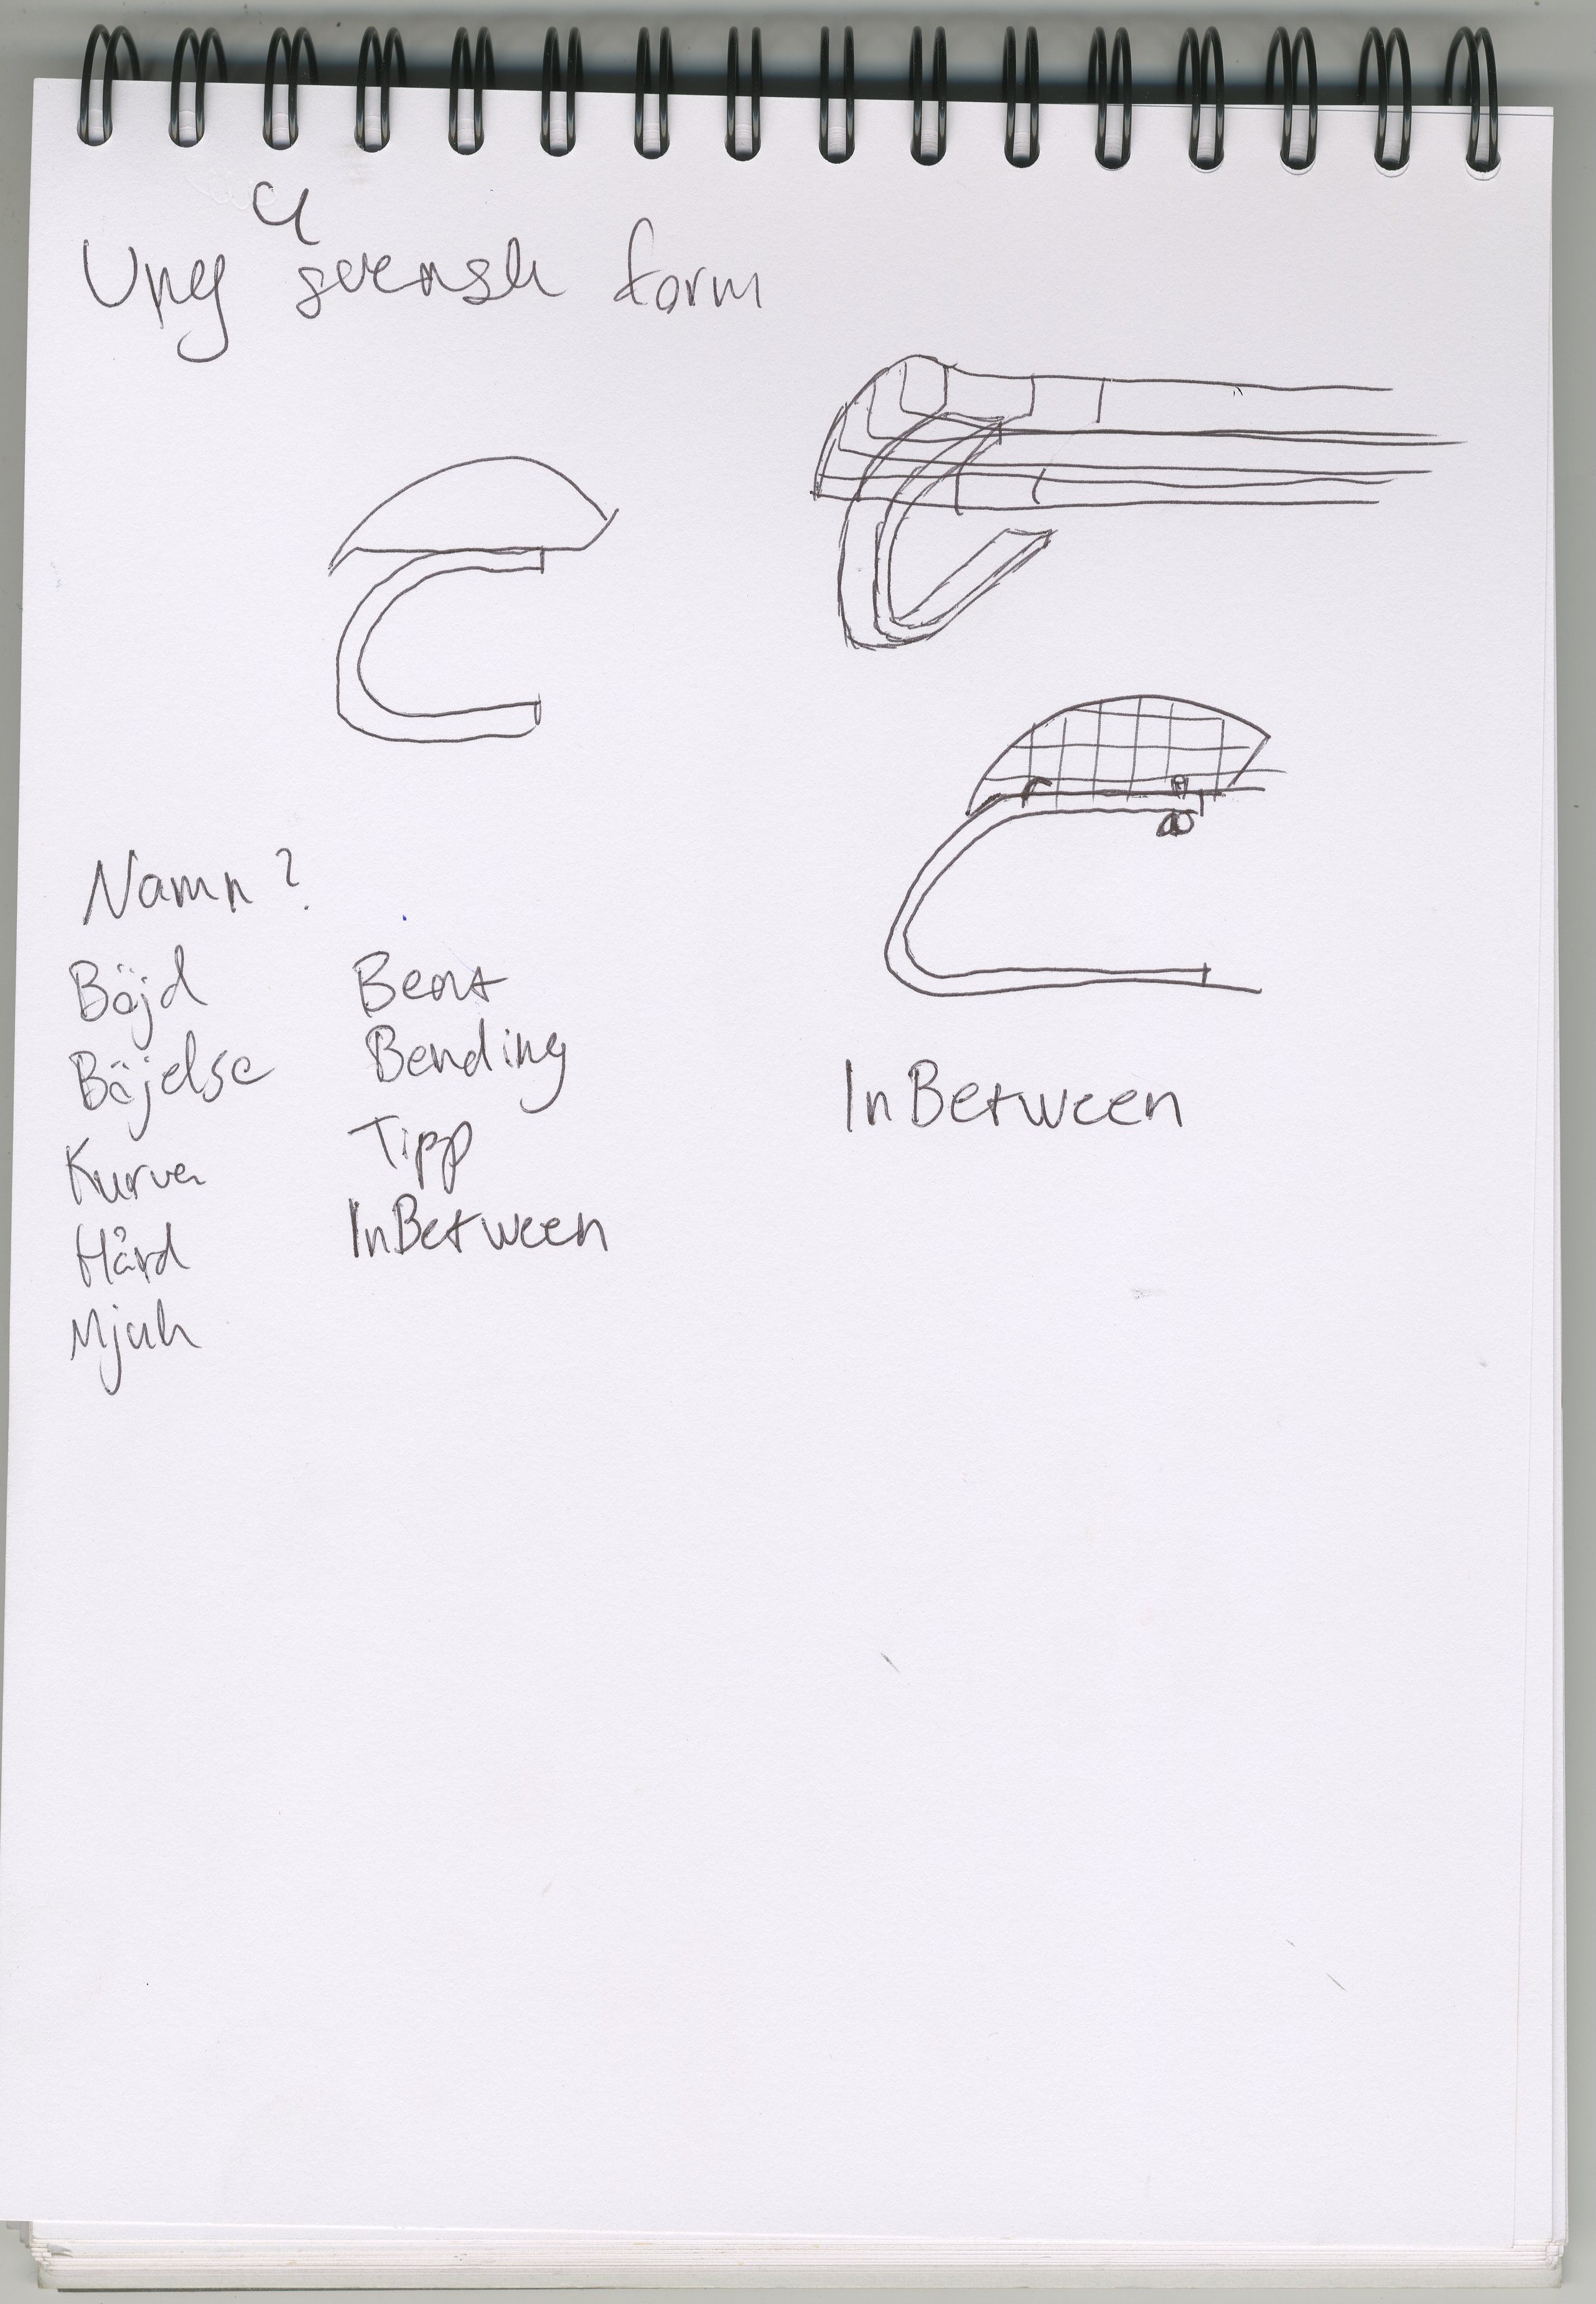 Ung svensk form
Namn?
Böjd
Böjelse
Kurva
Hård
Mjuk
Bent
Bending
Tipp
InBetween
InBetween